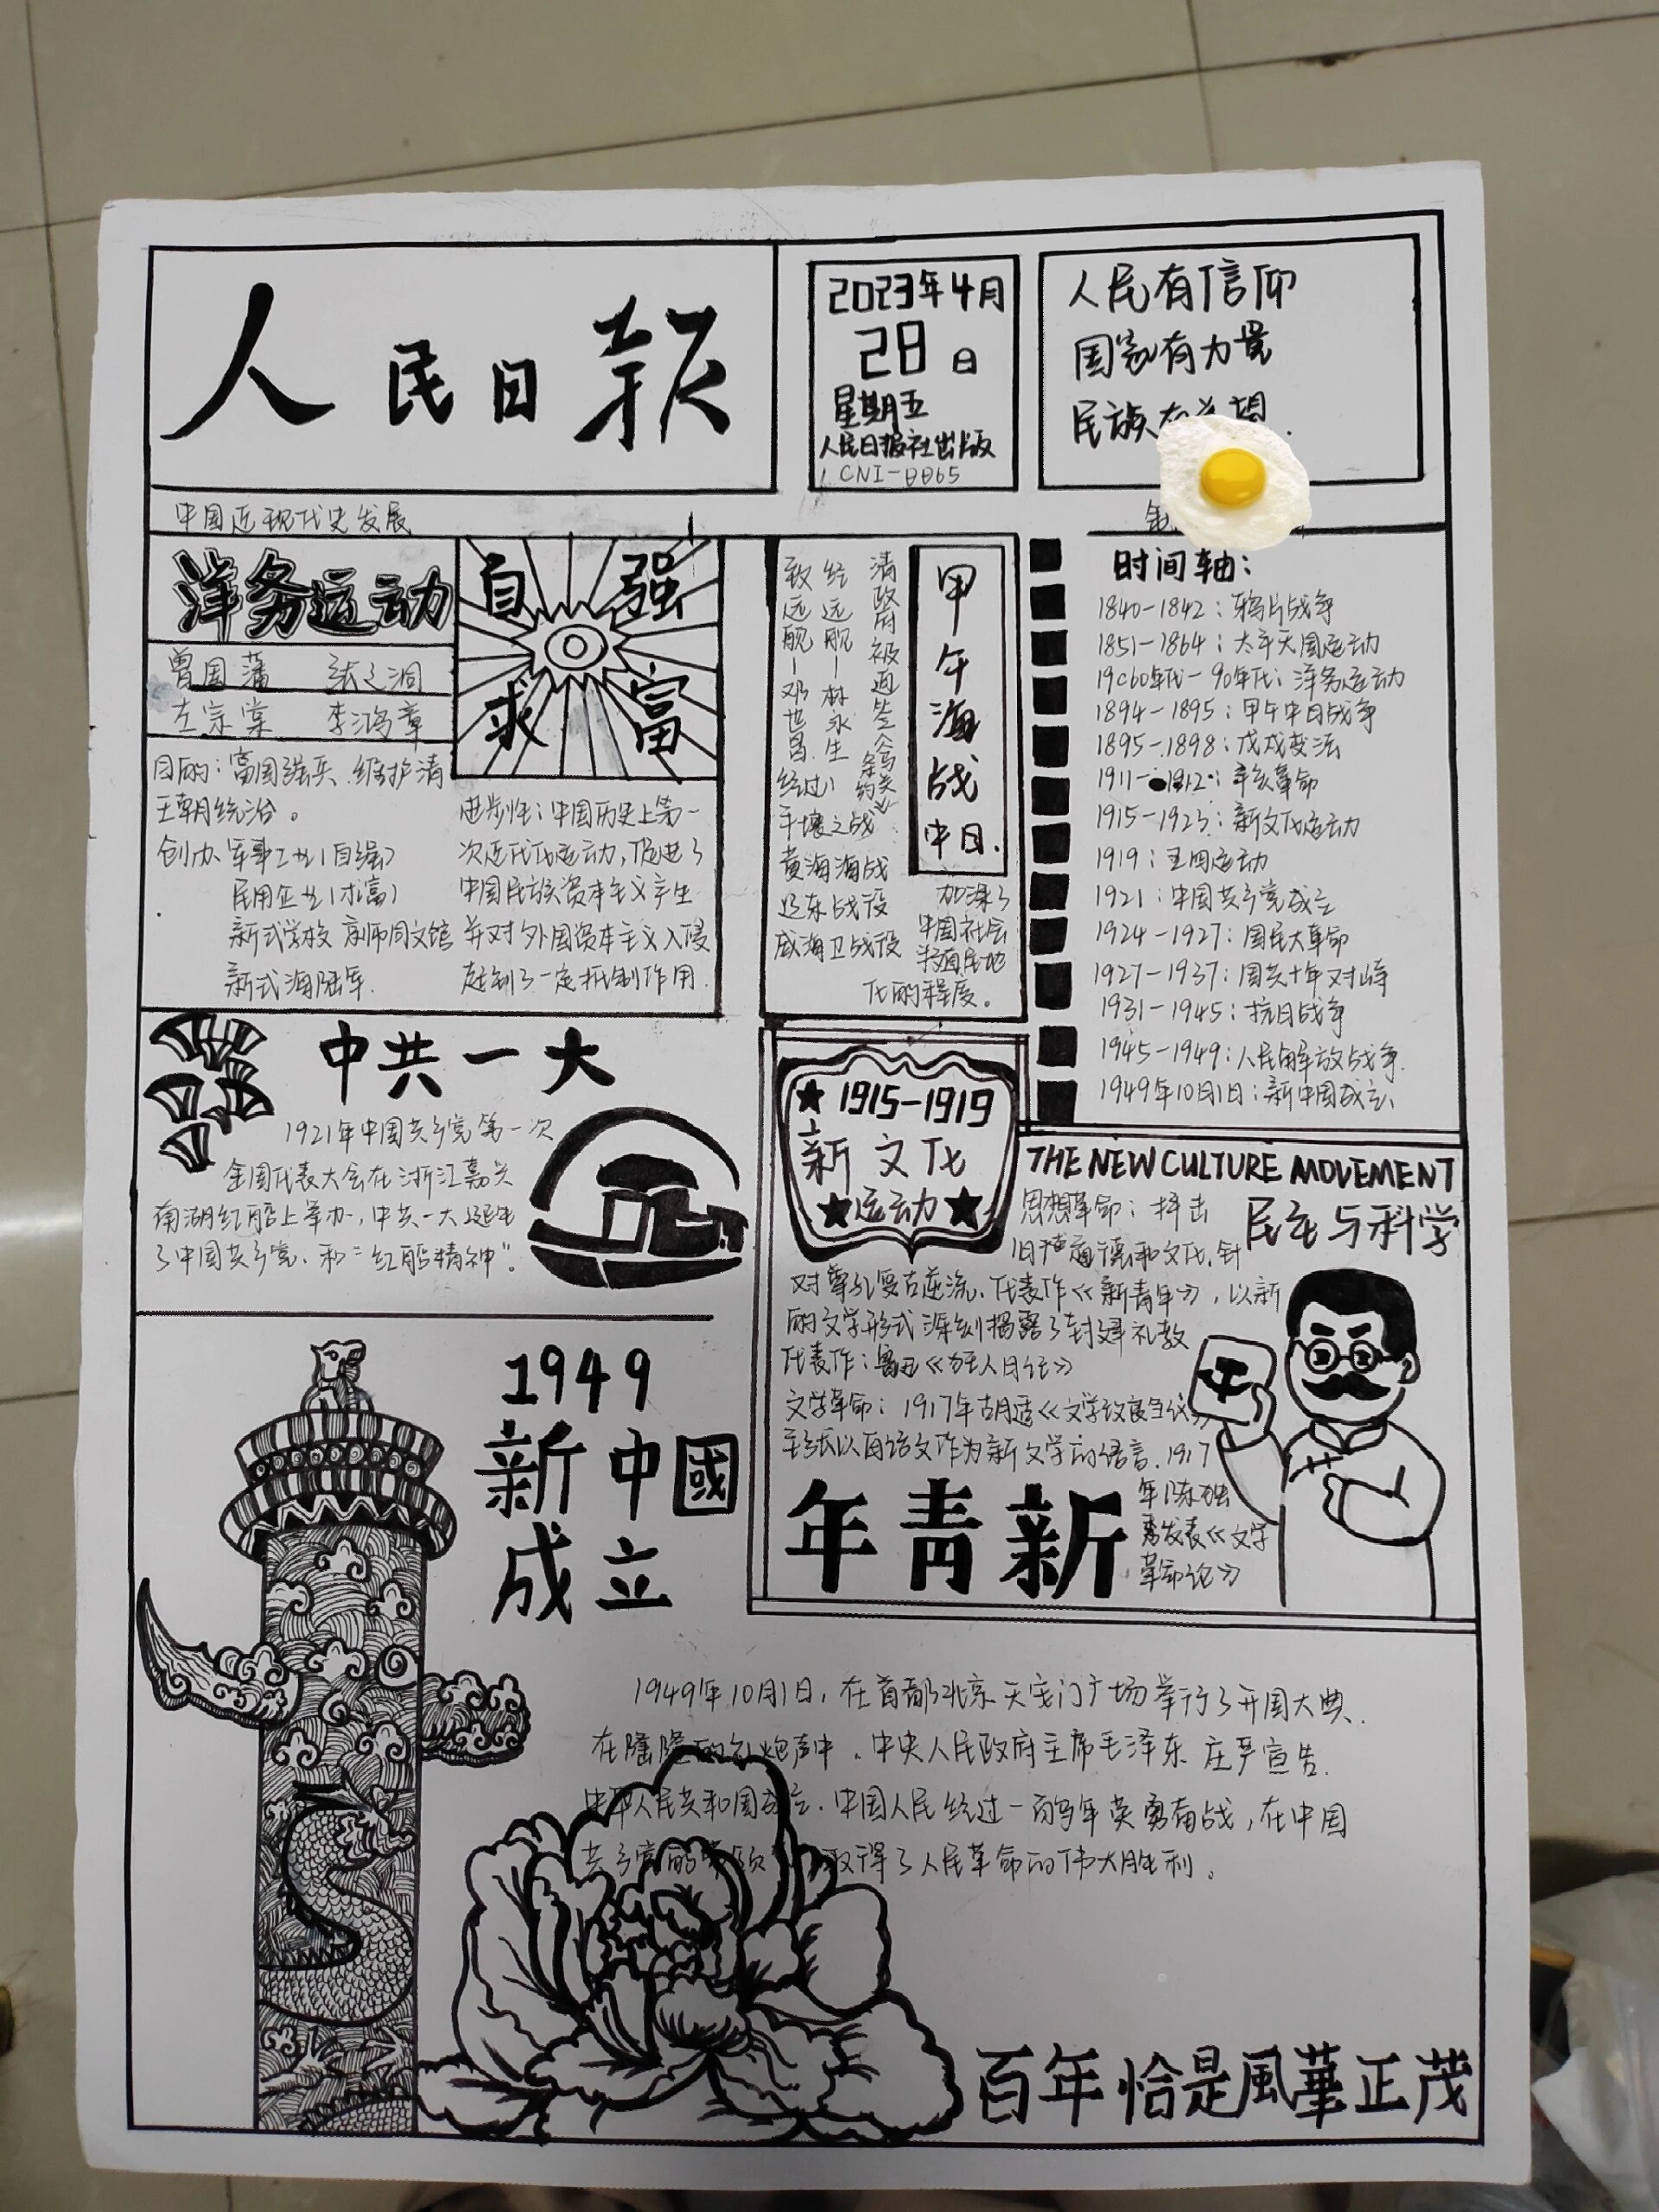 人民日报
2023年4月
28日
星期五
人民日报社出版
CNI-0065
人民有信仰
国家有力量
民族有希望.
中国近现代史发展
洋务运动
曾国藩 张之洞
左宗棠 李鸿章
自强
求富
目的：富国强兵、维护清
王朝统治。
创办：军事工业(自强)
民用企业(求富)
新式学校 京师同文馆
新式海陆军.
进步性：中国历史上第一
次近代化运动，促进了
中国民族资本主义产生
并对外国资本主义入侵
起到了一定抵制作用.
甲午海战
中日.
清政府被迫签《马关
条约》
经远舰—林永生
致远舰—邓世昌
经过：
平壤之战
黄海海战
辽东战役
威海卫战役
加深了
中国社会
半殖民地
化的程度。
时间轴：
1840-1842：鸦片战争
1851-1864：太平天国运动
19c60年代-90年代：洋务运动
1894-1895：甲午中日战争
1895-1898：戊戌变法
1911-1912：辛亥革命
1915-1923：新文化运动
1919：五四运动
1921：中国共产党成立
1924-1927：国民大革命
1927-1937：国共十年对峙
1931-1945：抗日战争
1945-1949：人民解放战争.
1949年10月1日：新中国成立
中共一大
1921年中国共产党第一次
全国代表大会在浙江嘉兴
南湖红船上举办，中共一大诞生
了中国共产党、和"红船精神"。
1915-1919
新文化
运动
THE NEW CULTURE MOVEMENT
民主与科学
思想革命：抨击
旧道德和文化,针
对尊孔复古逆流、代表作《新青年》，以新
的文学形式深刻揭露了封建礼教
代表作：鲁迅《狂人日记》
文学革命：1917年胡适《文学改良刍议》
主张以白话文作为新文学的语言.1917
年陈独
秀发表《文学
革命论》
年青新
1949
新中國
成立
1949年10月1日，在首都北京天安门广场举行了开国大典.
在隆隆的礼炮声中，中央人民政府主席毛泽东庄严宣告.
中华人民共和国成立.中国人民经过一百多年英勇奋战，在中国
共产党的带领 取得了人民革命的伟大胜利。
百年恰是風華正茂